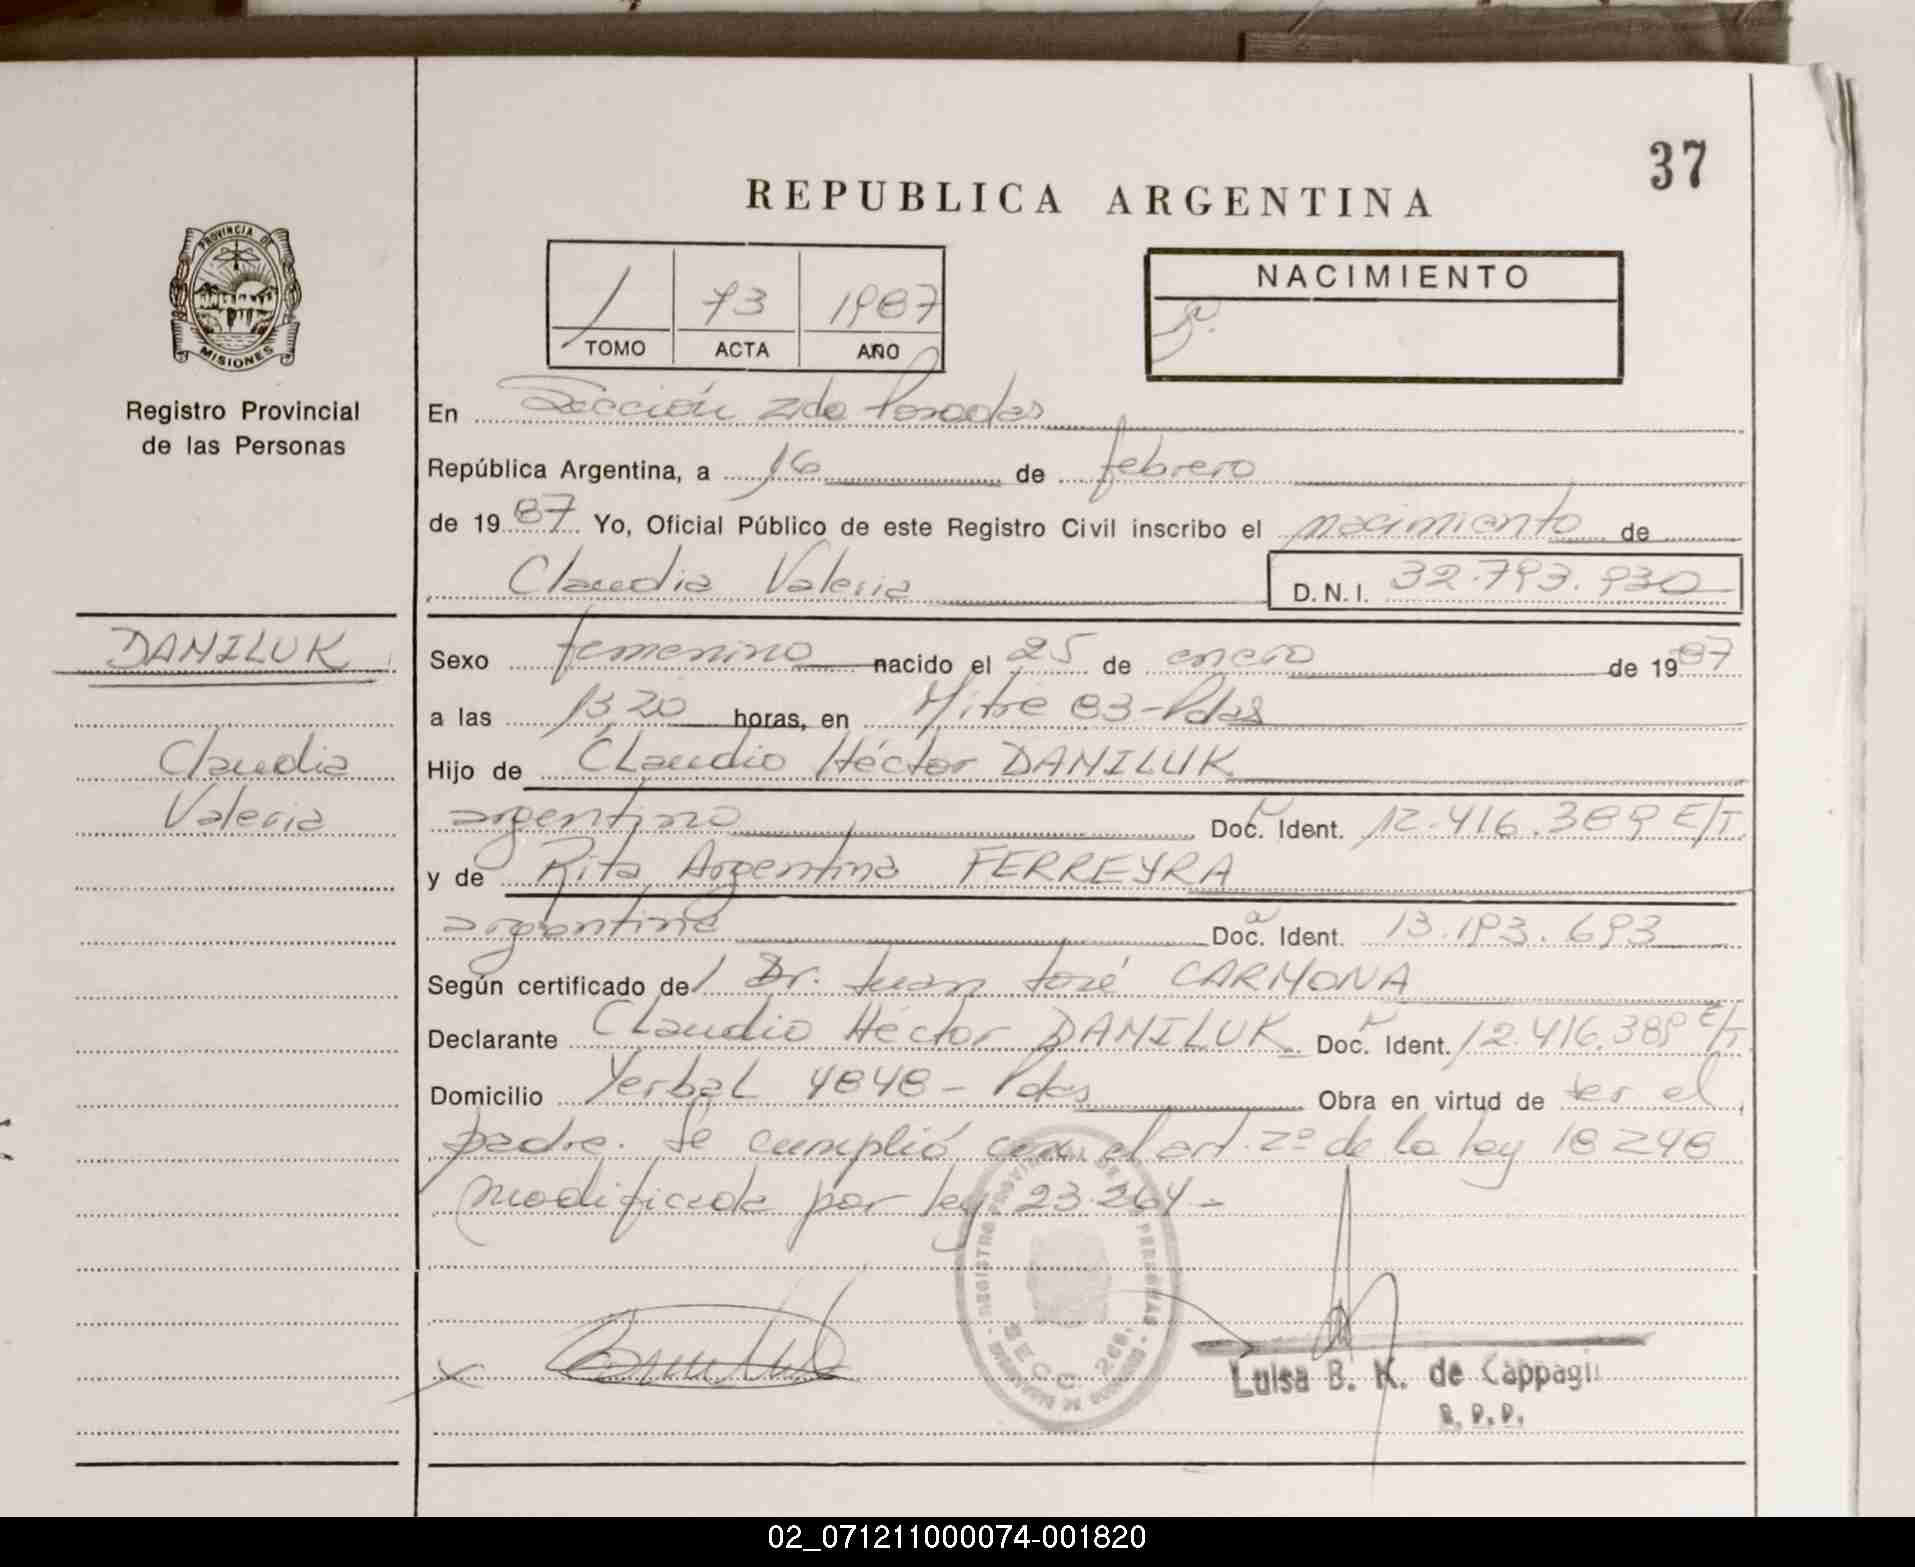 37
REPUBLICA ARGENTINA
PROVINCIA DE
MISIONES
Registro Provincial
de las Personas
1 73 1987
TOMO ACTA AÑO
NACIMIENTO
En Sección 2da Posadas
República Argentina, a 16 de febrero
de 1987 Yo, Oficial Público de este Registro Civil inscribo el nacimiento de
Claudia Valeria D.N.I. 32.793.930
DANILUK
Claudia
Valeria
Sexo femenino nacido el 25 de enero de 1987
a las 13,20 horas, en Mitre 83-Pdas
Hijo de Claudio Héctor DANILUK
argentino Doc. Ident. 12.416.389 E/T
y de Rita Argentina FERREYRA
argentina Doc. Ident. 13.193.693
Según certificado del Dr. Juan José CARMONA
Declarante Claudio Héctor DANILUK Doc. Ident. 12.416.389 E/T
Domicilio Yerbal 4848 - Pdas Obra en virtud de ser el
padre. Se cumplió con el art. 2º de la ley 18248
modificada por ley 23.264 -
REGISTRO PROVINCIAL DE LAS PERSONAS
SECC. 2da.
Luisa B. K. de Cappagli
02_071211000074-001820